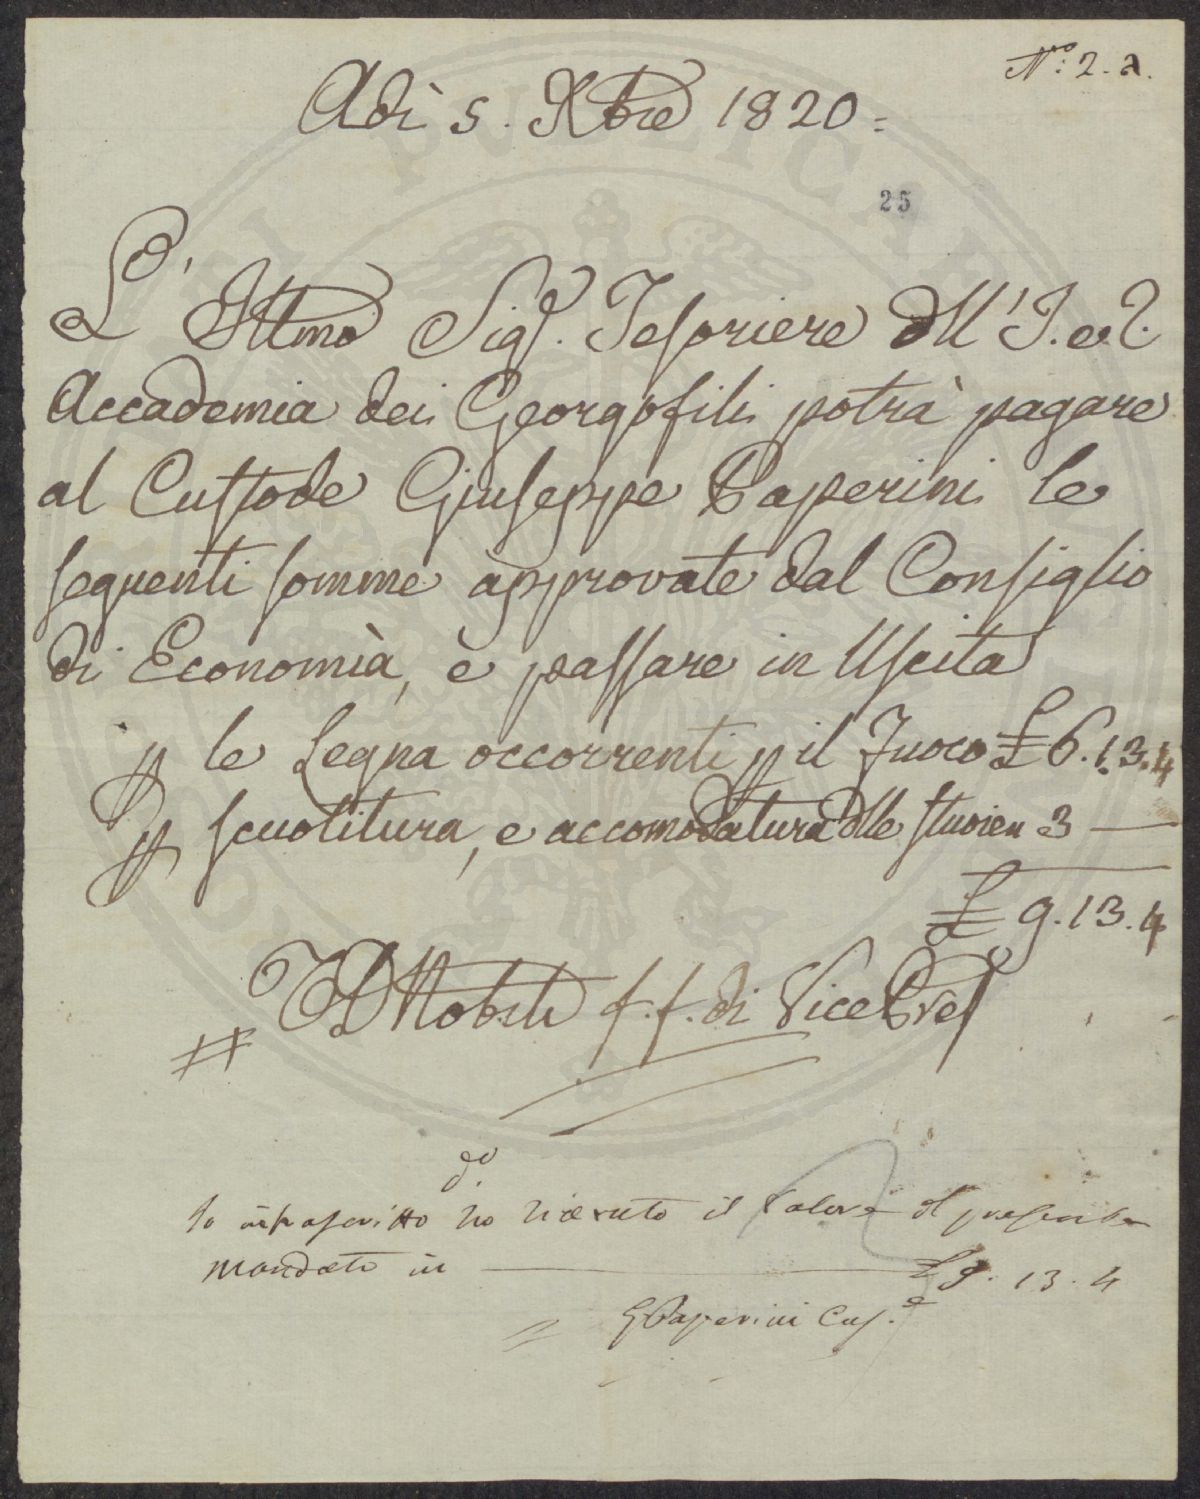 N.ro 2. a.
Adì 5. Xbre 1820.
25
L' Ill.mo Sig.r Tesoriere dell' I. e R.
Accademia dei Georgofili potrà pagare
al Custode Giuseppe Paperini le
seguenti somme approvate dal Consiglio
di Economìa, è passare in Uscita
p le Legna occorrenti p il Fuoco £ 6.13.4
p scuotitura, e accomodatura delle stuoie 3 —
£ 9.13.4
Nobili f.f. di Vice Pres
do.
Io infrascritto ho ricevuto il valore del presente
mandato in — £ 9.13.4
G Paperini Cus.e